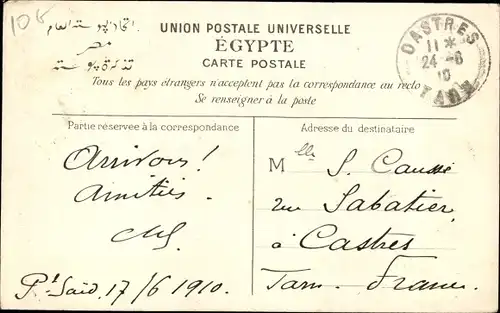 10c
اتحاد البوستة العام
مصر
تذكرة بوستة
UNION POSTALE UNIVERSELLE
ÉGYPTE
CARTE POSTALE
Tous les pays étrangers n'acceptent pas la correspondance au recto
Se renseigner à la poste
CASTRES
11 *
24 -6
10
TARN
Partie réservée à la correspondance
Arrivons!
Amitiés.
Pt Saïd 17/6 1910.
Adresse du destinataire
Mlle S. Caussé
rue Sabatier
à Castres
Tarn. France